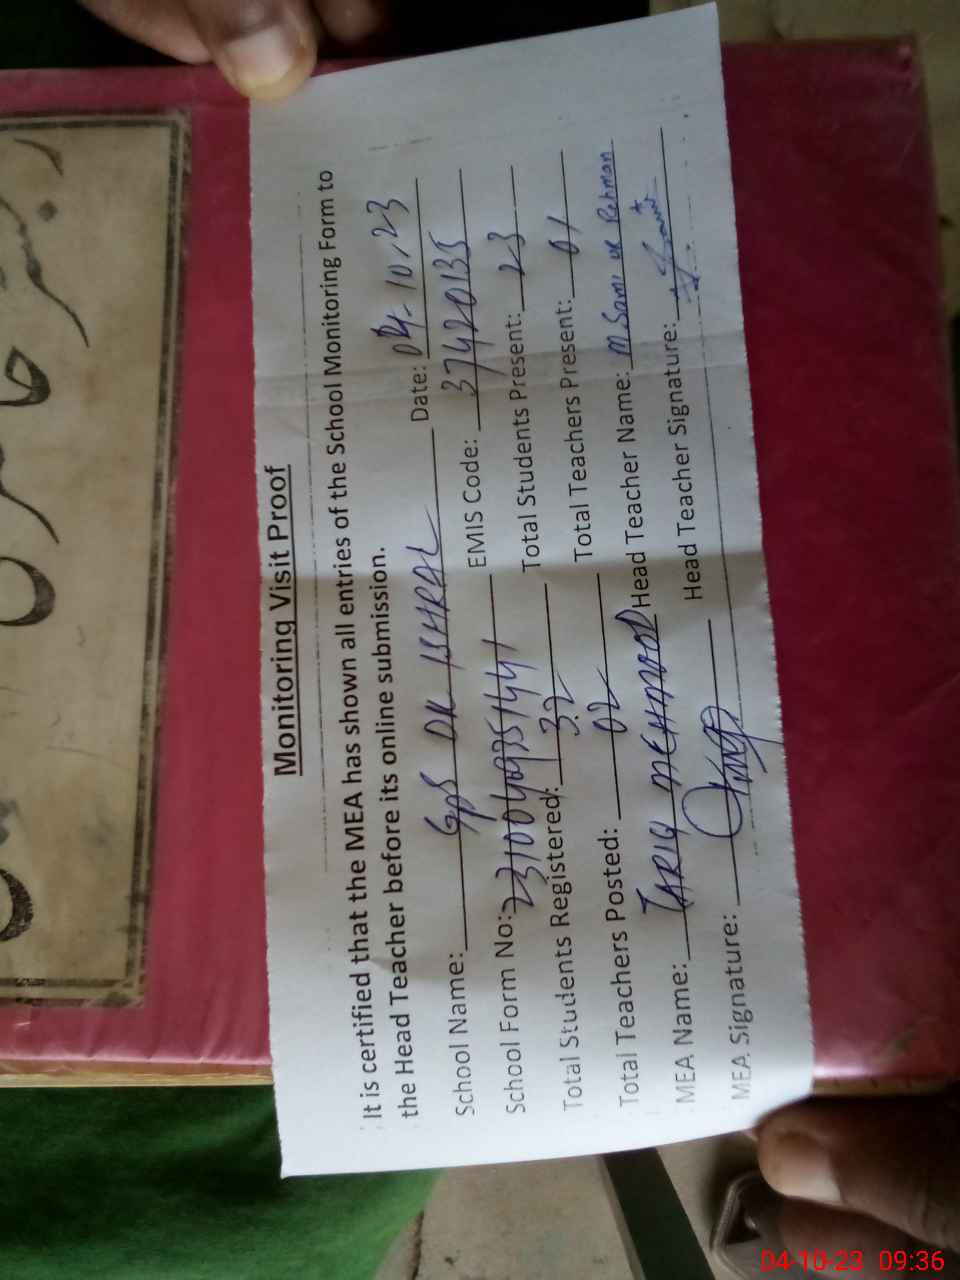 Monitoring Visit Proof
It is certified that the MEA has shown all entries of the School Monitoring Form to
the Head Teacher before its online submission.
School Name: GPS DK ISHRAL Date: 04-10-23
School Form No: EMIS Code: 37420135
Total Students Registered: 32 Total Students Present: 23
Total Teachers Posted: 02 Total Teachers Present: 01
MEA Name: TARIQ MEHMOOD Head Teacher Name: M Sami ur Rehman
MEA Signature: Head Teacher Signature:
04-10-23 09:36